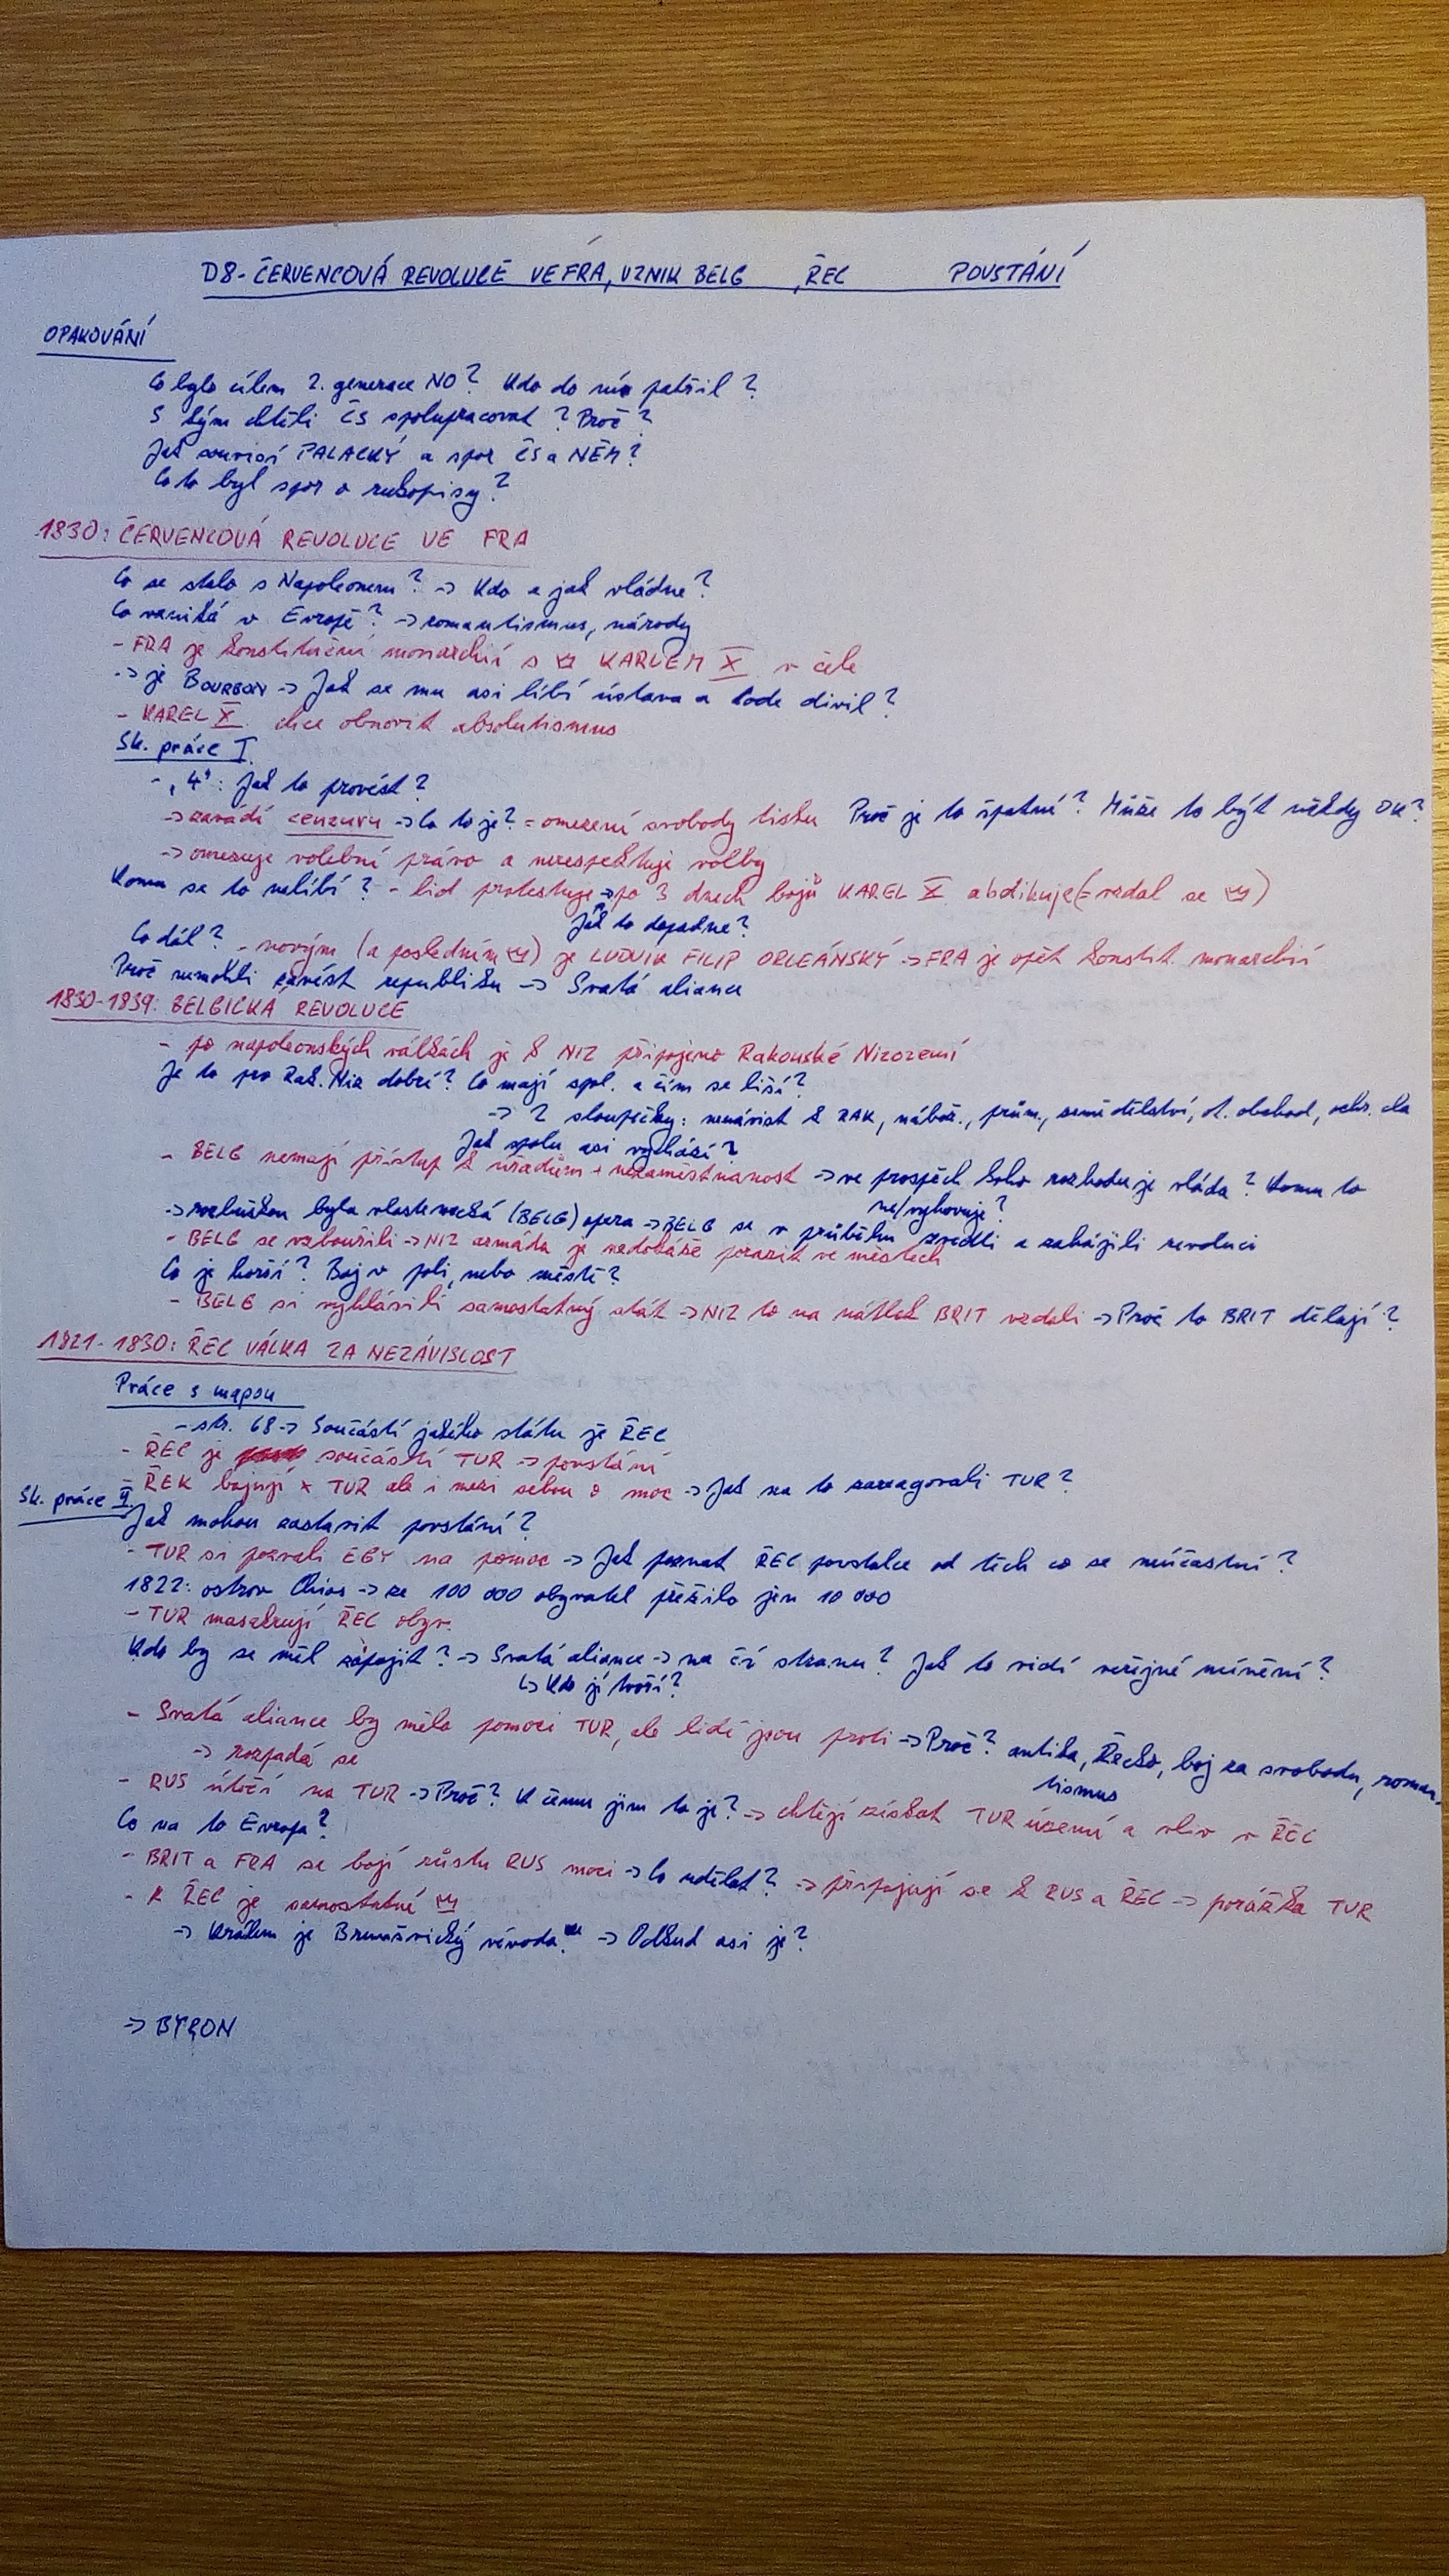 D8 - ČERVENCOVÁ REVOLUCE VE FRA, VZNIK BELG , ŘEC POVSTÁNÍ
OPAKOVÁNÍ
Co bylo cílem 2. generace NO? Kdo do ní patřil?
S kým chtěli ČS spolupracovat? Proč?
Jak souvisí PALACKÝ a spor ČS a NĚM?
Co to byl spor o rukopisy?
1830: ČERVENCOVÁ REVOLUCE VE FRA
Co se stalo s Napoleonem? -> Kdo a jak vládne?
Co vzniká v Evropě? -> romantismus, národy
- FRA je konstituční monarchií s KARLEM X. v čele
-> je BOURBON -> Jak se mu asi líbí ústava a kode civil?
- KAREL X. chce obnovit absolutismus
Sk. práce I.
- "4": Jak to provést?
-> zavádí cenzuru -> Co to je? = omezení svobody tisku Proč je to špatné? Může to být někdy OK?
-> omezuje volební právo a nerespektuje volby
Komu se to nelíbí? - lid protestuje -> po 3 dnech bojů KAREL X abdikuje (= vzdal se )
Jak to dopadne?
Co dál? - novým (a posledním ) je LUDVÍK FILIP ORLEÁNSKÝ -> FRA je opět konstit. monarchií
Proč nemohli zavést republiku -> Svatá aliance
1830-1839: BELGICKÁ REVOLUCE
- po napoleonských válkách je k NIZ připojeno Rakouské Nizozemí
Je to pro Rak. Niz dobré? Co mají spol. a čím se liší?
-> 2 sloupečky: nenávist k RAK, nábož., prům., zemědělství, d. obchod, ochr. cla
Jak spolu asi vychází?
- BELG nemají přístup k úřadům + nezaměstnanost -> ve prospěch koho rozhoduje vláda? Komu to
ne/vyhovuje?
-> rozbuškou byla vlastenecká (BELG) opera -> BELG se v průběhu zvedli a zahájili revoluci
- BELG se vzbouřili -> NIZ armáda je nedokáže porazit ve městech
Co je horší? Boj v poli, nebo městě?
- BELG si vyhlásili samostatný stát -> NIZ to na nátlak BRIT vzdali -> Proč to BRIT dělají?
1821-1830: ŘEC VÁLKA ZA NEZÁVISLOST
Práce s mapou
- str. 68 -> Součástí jakého státu je ŘEC
- ŘEC je součástí TUR -> povstání
- ŘEK bojují x TUR ale i mezi sebou o moc -> Jak na to zareagovali TUR?
Sk. práce II.
Jak mohou zastavit povstání?
- TUR si pozvali EGY na pomoc -> Jak poznat ŘEC povstalce od těch co se neúčastní?
1822: ostrov Chios -> ze 100 000 obyvatel přežilo jen 10 000
- TUR masakrují ŘEC obyv.
Kdo by se měl zapojit? -> Svatá aliance -> na čí stranu? Jak to vidí veřejné mínění?
↳ Kdo ji tvoří?
- Svatá aliance by měla pomoci TUR, ale lidé jsou proti -> Proč? antika, Řecko, boj za svobodu, roman-
tismus
-> rozpadá se
- RUS útočí na TUR -> Proč? K čemu jim to je? -> chtějí získat TUR území a vliv v ŘEC
Co na to Evropa?
- BRIT a FRA se bojí růstu RUS moci -> Co udělat? -> připojují se k RUS a ŘEC -> porážka TUR
- K ŘEC je samostatné
-> Králem je Brunšvický vévoda. -> Odkud asi je?
-> BYRON